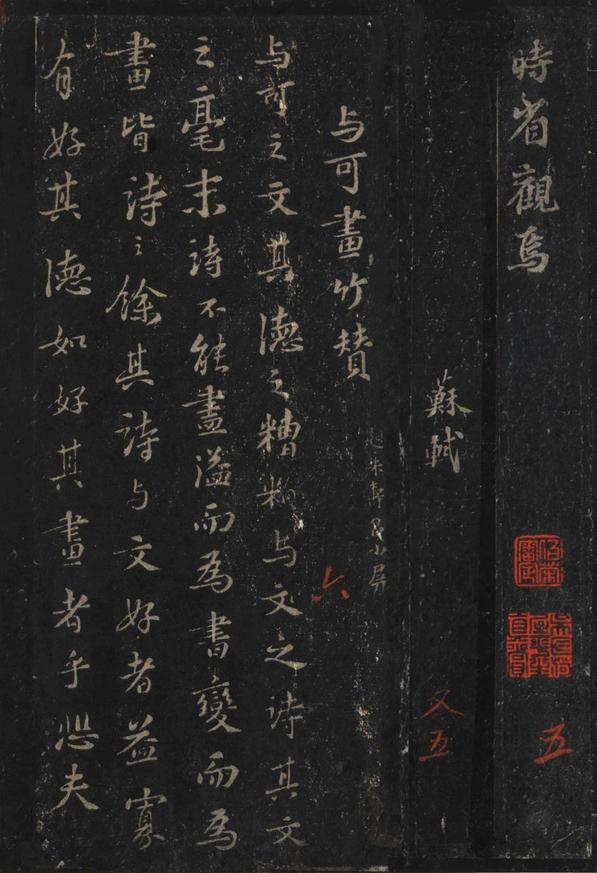 時省觀焉
五
蘇軾
又五
与可畫竹贊
六
与可之文其德之糟粕与文之詩其文
之毫末詩不能盡溢而為書變而為
畫皆詩之餘其詩与文好者益寡
有好其德如好其畫者乎悲夫